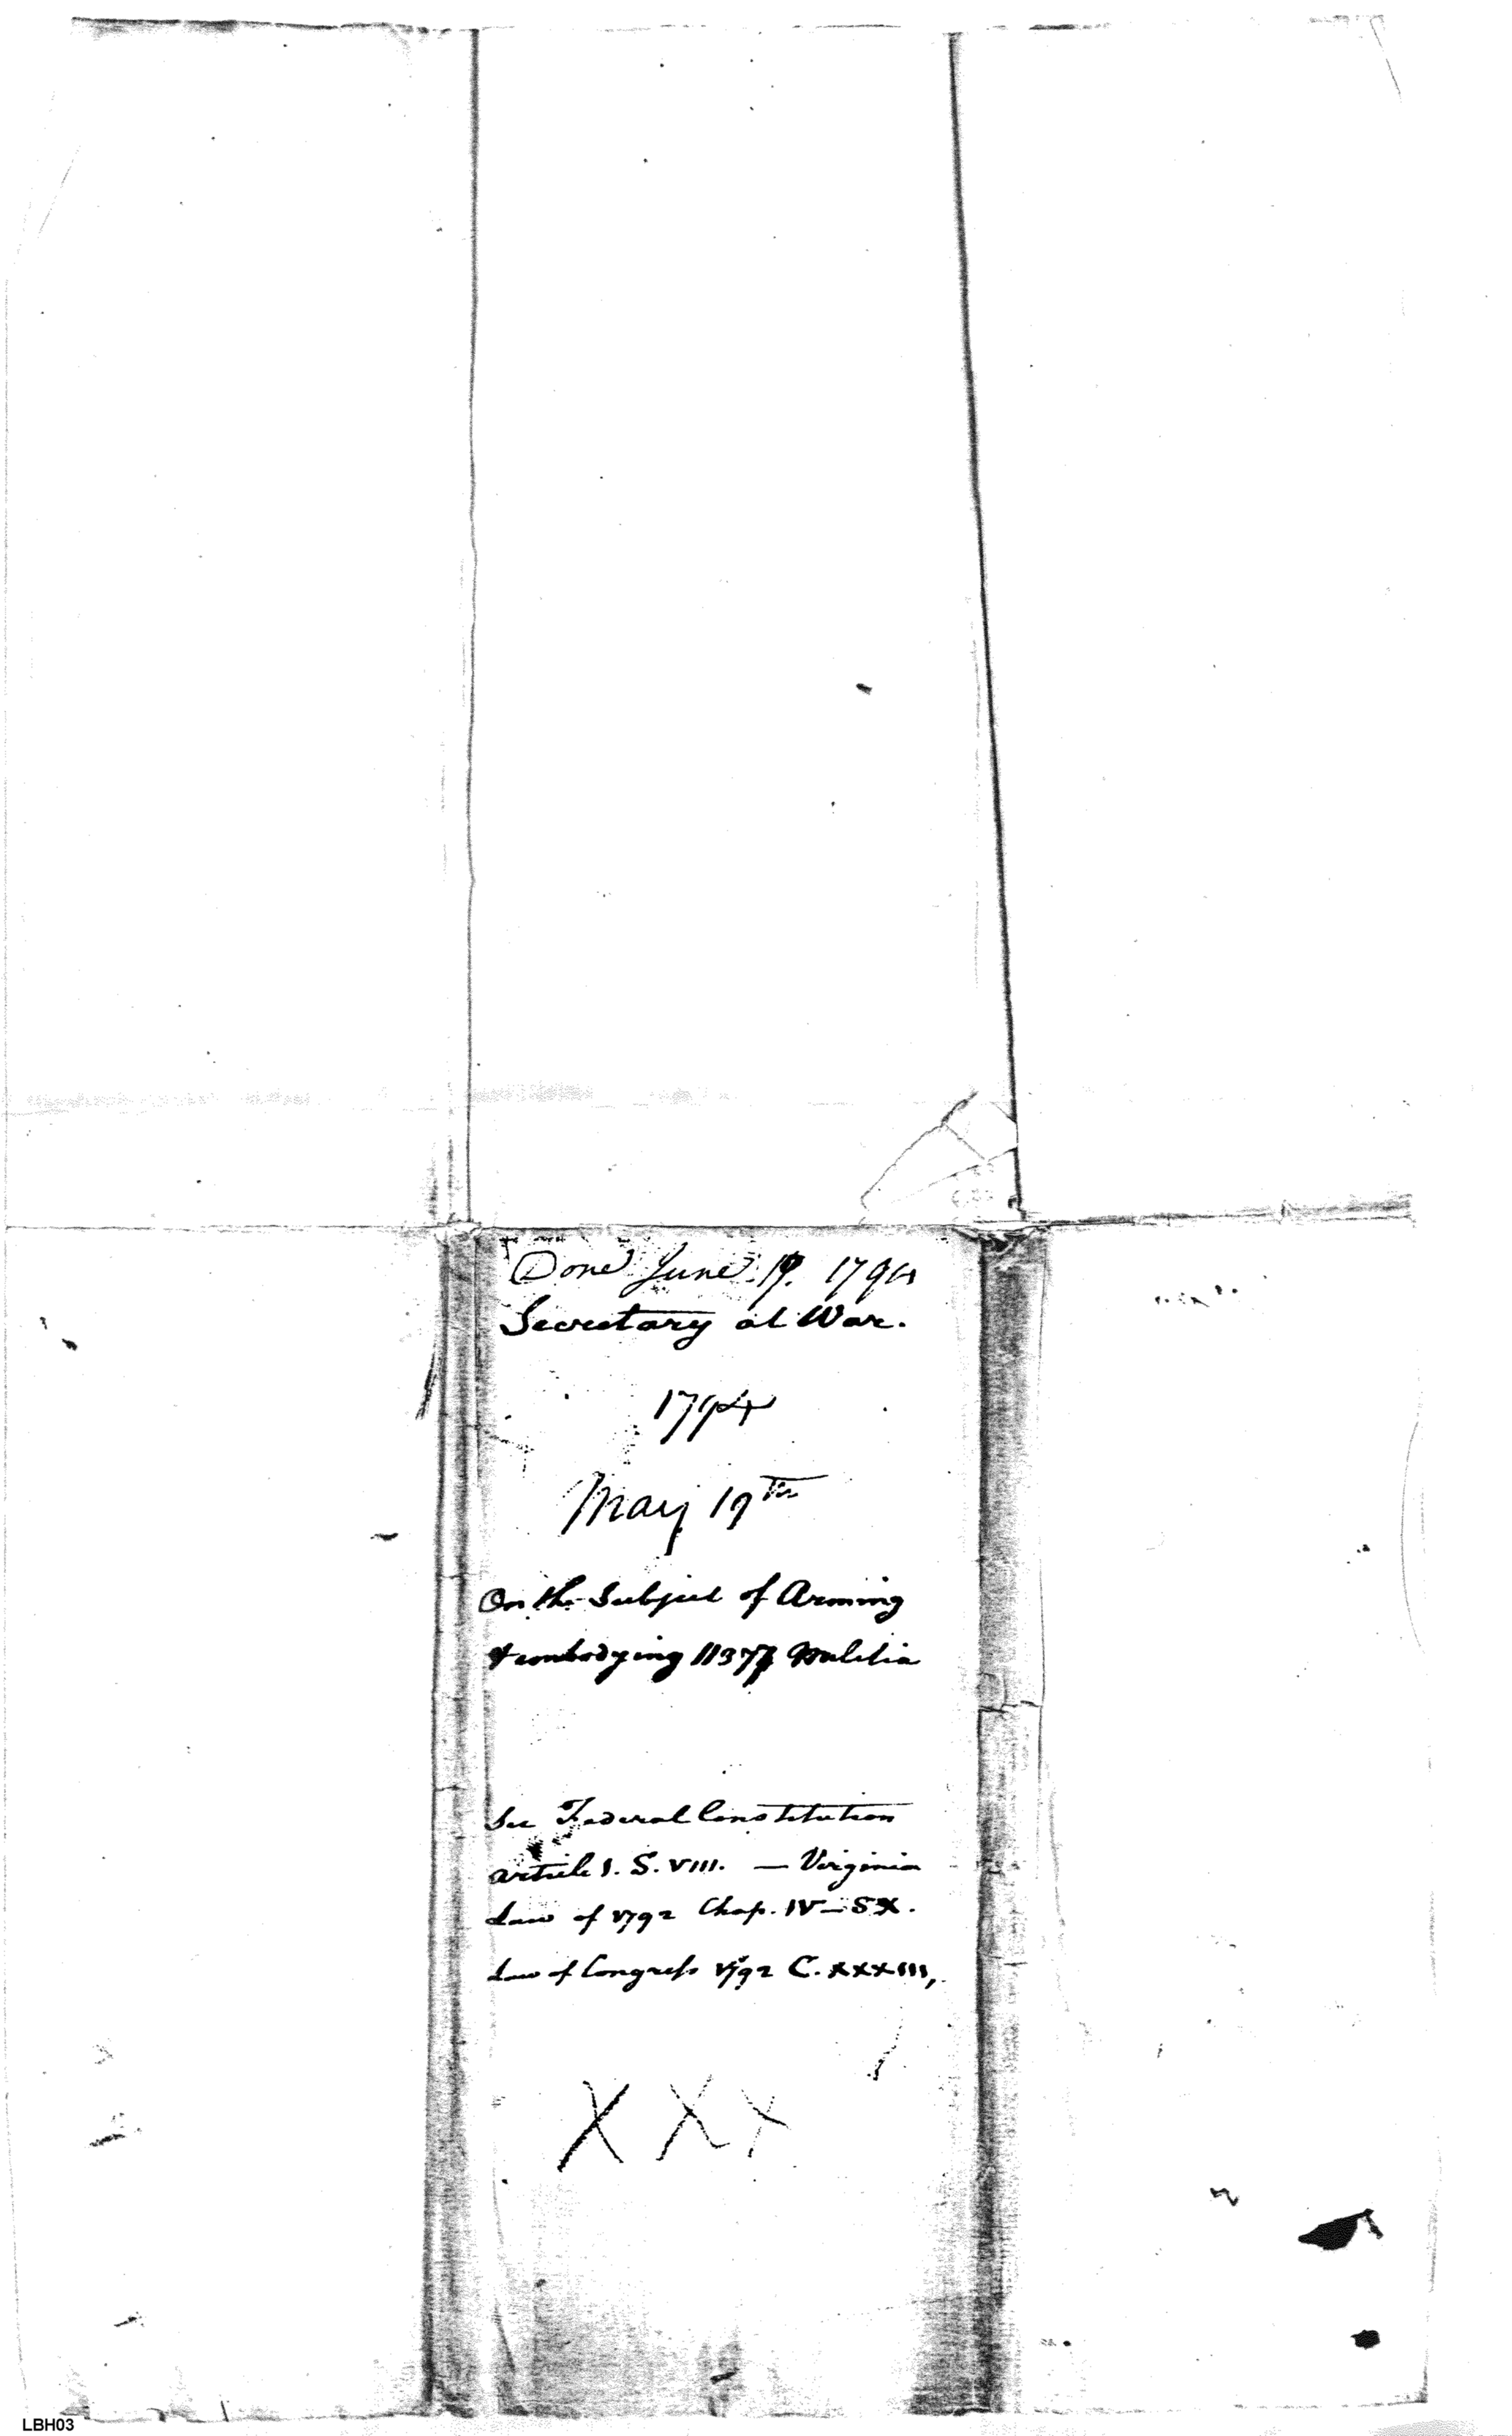 Done June 19. 1794
Secretary at War.
1794
May 19th
On the Subject of Arming
& embodying 11377 Militia
See Federal Constitution
article 1. S. VIII. — Virginia
Law of 1792 Chap. IV — SX.
Law of Congress 1792 C. XXXIII,
X X X
LBH03